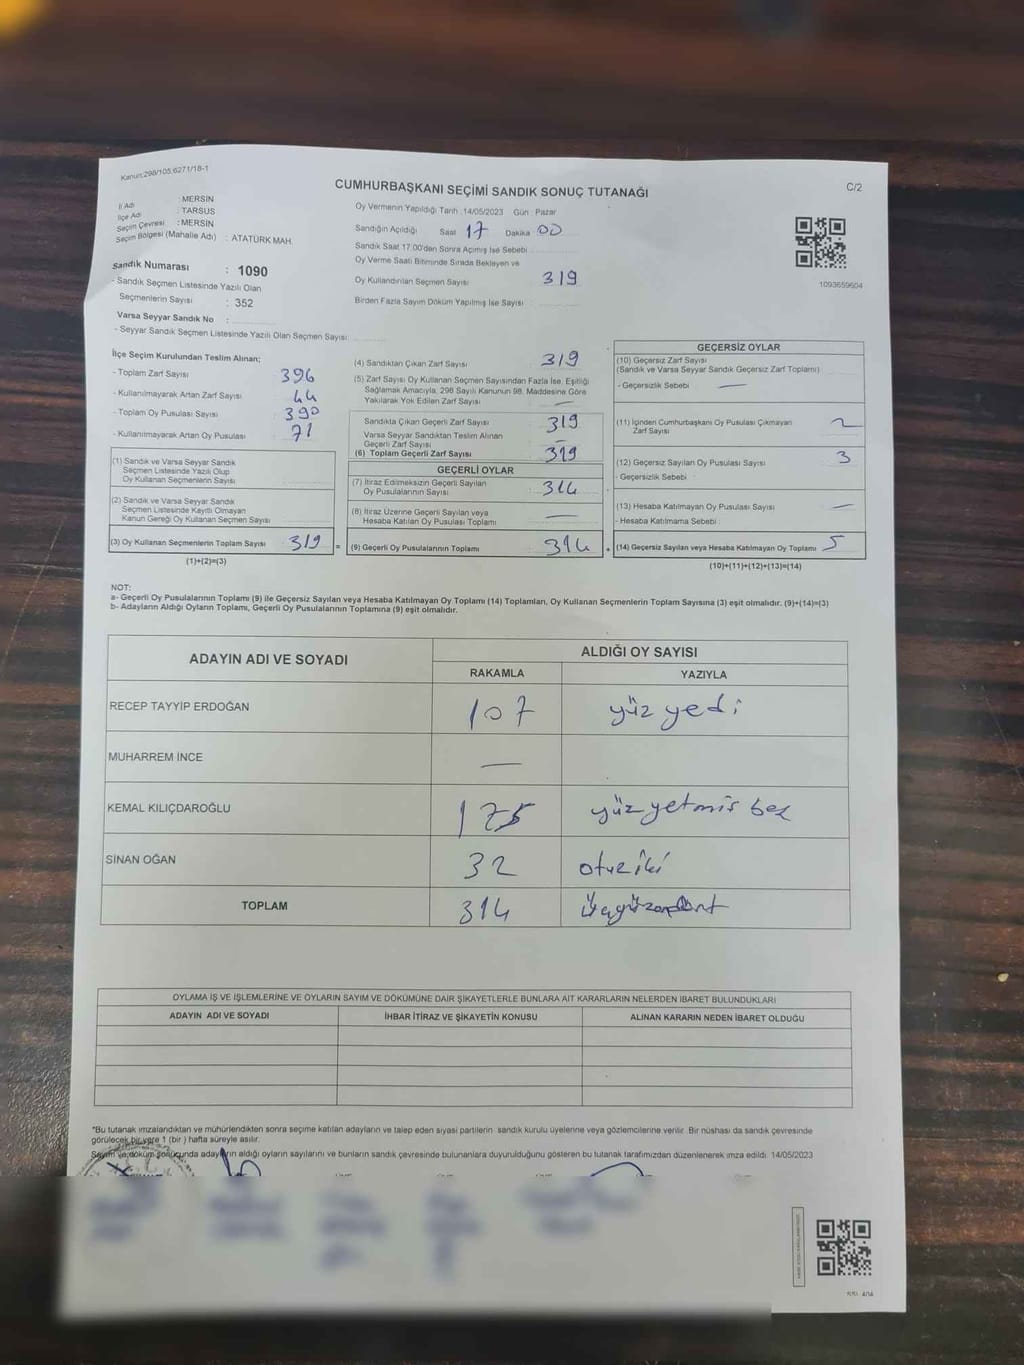 Kanun:298/105,6271/18-1
CUMHURBAŞKANI SEÇİMİ SANDIK SONUÇ TUTANAĞI
C/2
İl Adı : MERSİN
İlçe Adı : TARSUS
Seçim Çevresi : MERSİN
Seçim Bölgesi (Mahalle Adı) : ATATÜRK MAH.
Sandık Numarası : 1090
- Sandık Seçmen Listesinde Yazılı Olan
Seçmenlerin Sayısı : 352
Varsa Seyyar Sandık No :
- Seyyar Sandık Seçmen Listesinde Yazılı Olan Seçmen Sayısı:
Oy Vermenin Yapıldığı Tarih :14/05/2023 Gün : Pazar
Sandığın Açıldığı Saat 17 Dakika 00
Sandık Saat 17:00'den Sonra Açımış İse Sebebi
Oy Verme Saati Bitiminde Sırada Bekleyen ve
Oy Kullandırılan Seçmen Sayısı : 319
Birden Fazla Sayım Döküm Yapılmış İse Sayısı :
1093659604
İlçe Seçim Kurulundan Teslim Alınan;
- Toplam Zarf Sayısı 396
- Kullanılmayarak Artan Zarf Sayısı 44
- Toplam Oy Pusulası Sayısı 390
- Kullanılmayarak Artan Oy Pusulası 71
(1) Sandık ve Varsa Seyyar Sandık
Seçmen Listesinde Yazılı Olup
Oy Kullanan Seçmenlerin Sayısı
(2) Sandık ve Varsa Seyyar Sandık
Seçmen Listesinde Kayıtlı Olmayan
Kanun Gereği Oy Kullanan Seçmen Sayısı
(3) Oy Kullanan Seçmenlerin Toplam Sayısı 319 =
(1)+(2)=(3)
(4) Sandıktan Çıkan Zarf Sayısı 319
(5) Zarf Sayısı Oy Kullanan Seçmen Sayısından Fazla İse, Eşitliği
Sağlamak Amacıyla, 298 Sayılı Kanunun 98. Maddesine Göre
Yakılarak Yok Edilen Zarf Sayısı —
Sandıkta Çıkan Geçerli Zarf Sayısı 319
Varsa Seyyar Sandıktan Teslim Alınan
Geçerli Zarf Sayısı —
(6) Toplam Geçerli Zarf Sayısı 319
GEÇERLİ OYLAR
(7) İtiraz Edilmeksizin Geçerli Sayılan
Oy Pusulalarının Sayısı 314
(8) İtiraz Üzerine Geçerli Sayılan veya
Hesaba Katılan Oy Pusulası Toplamı —
(9) Geçerli Oy Pusulalarının Toplamı 314 +
GEÇERSİZ OYLAR
(10) Geçersiz Zarf Sayısı
(Sandık ve Varsa Seyyar Sandık Geçersiz Zarf Toplamı)
- Geçersizlik Sebebi —
(11) İçinden Cumhurbaşkanı Oy Pusulası Çıkmayan
Zarf Sayısı 2
(12) Geçersiz Sayılan Oy Pusulası Sayısı 3
- Geçersizlik Sebebi
(13) Hesaba Katılmayan Oy Pusulası Sayısı —
- Hesaba Katılmama Sebebi :
(14) Geçersiz Sayılan veya Hesaba Katılmayan Oy Toplamı 5
(10)+(11)+(12)+(13)=(14)
NOT:
a- Geçerli Oy Pusulalarının Toplamı (9) ile Geçersiz Sayılan veya Hesaba Katılmayan Oy Toplamı (14) Toplamları, Oy Kullanan Seçmenlerin Toplam Sayısına (3) eşit olmalıdır. (9)+(14)=(3)
b- Adayların Aldığı Oyların Toplamı, Geçerli Oy Pusulalarının Toplamına (9) eşit olmalıdır.
ADAYIN ADI VE SOYADI
ALDIĞI OY SAYISI
RAKAMLA YAZIYLA
RECEP TAYYİP ERDOĞAN 107 yüz yedi
MUHARREM İNCE —
KEMAL KILIÇDAROĞLU 175 yüz yetmis beş
SİNAN OĞAN 32 otuz iki
TOPLAM 314
OYLAMA İŞ VE İŞLEMLERİNE VE OYLARIN SAYIM VE DÖKÜMÜNE DAİR ŞİKAYETLERLE BUNLARA AİT KARARLARIN NELERDEN İBARET BULUNDUKLARI
ADAYIN ADI VE SOYADI İHBAR İTİRAZ VE ŞİKAYETİN KONUSU ALINAN KARARIN NEDEN İBARET OLDUĞU
*Bu tutanak imzalandıktan ve mühürlendikten sonra seçime katılan adayların ve talep eden siyasi partilerin sandık kurulu üyelerine veya gözlemcilerine verilir. Bir nüshası da sandık çevresinde
görülecek bir yere 1 (bir ) hafta süreyle asılır.
Sayım ve döküm sonucunda adayların aldığı oyların sayılarını ve bunların sandık çevresinde bulunanlara duyurulduğunu gösteren bu tutanak tarafımızdan düzenlenerek imza edildi. 14/05/2023